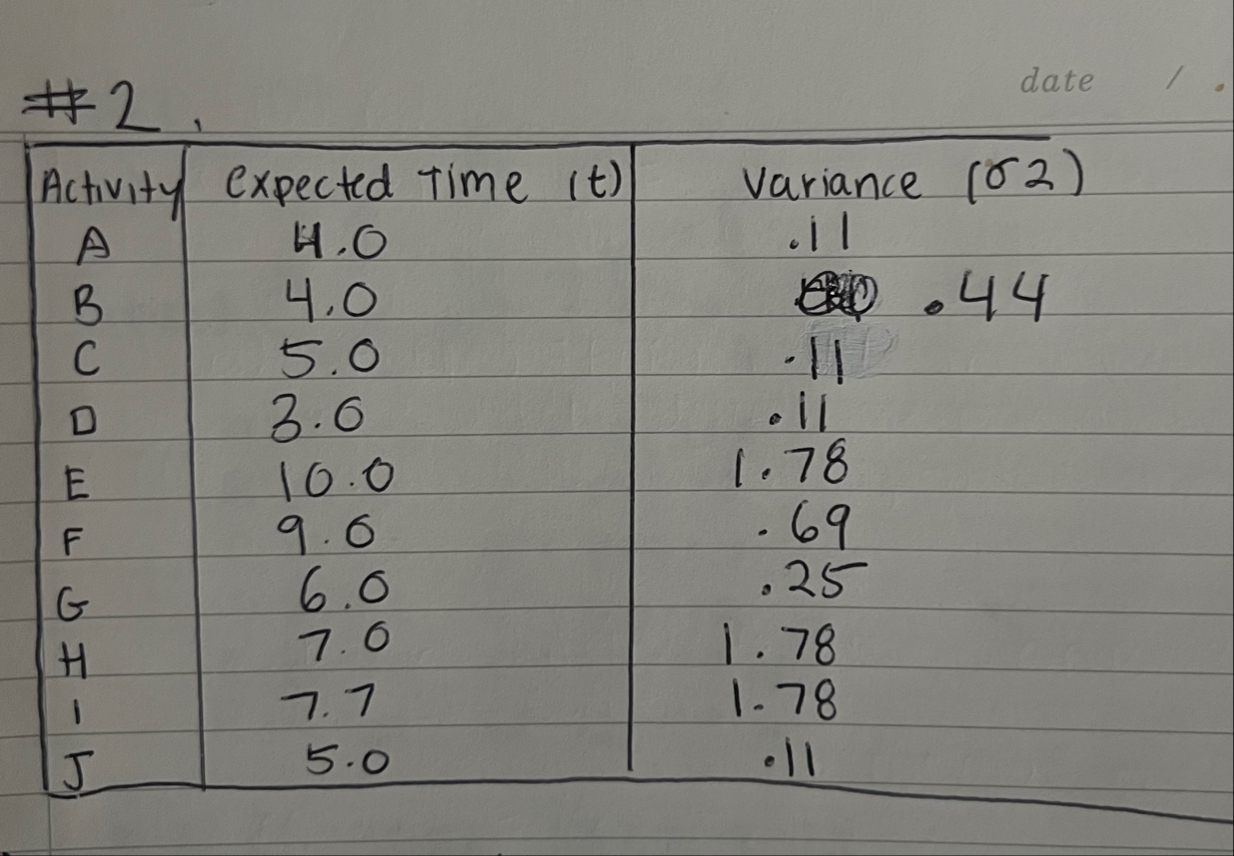 date / .
#2.
Activity expected Time (t) Variance (σ2)
A 4.0 .11
B 4.0 .44
C 5.0 .11
D 3.0 .11
E 10.0 1.78
F 9.0 .69
G 6.0 .25
H 7.0 1.78
I 7.7 1.78
J 5.0 .11